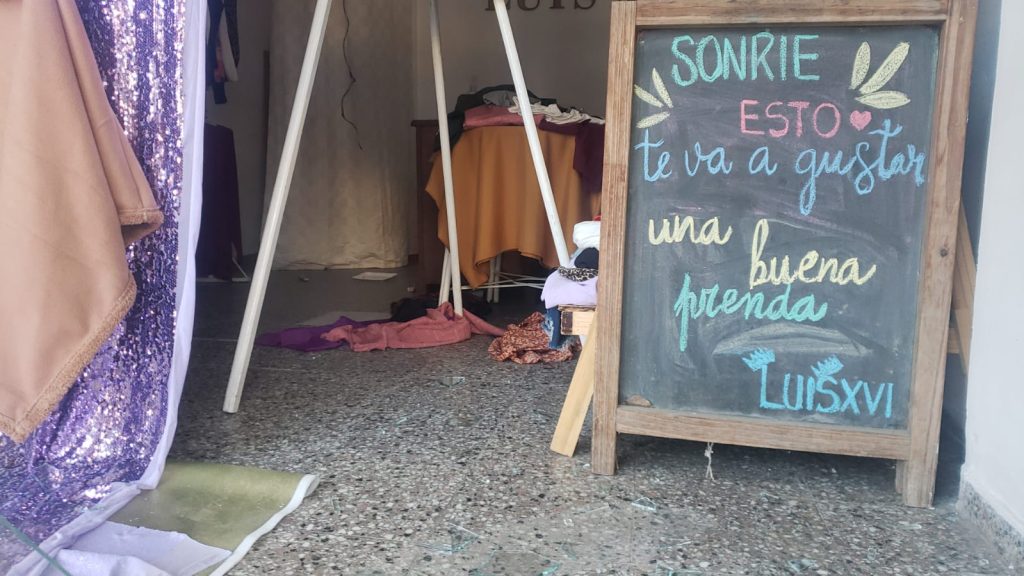 LUIS
SONRIE
ESTO
te va a gustar
una buena
prenda
LUISXVI